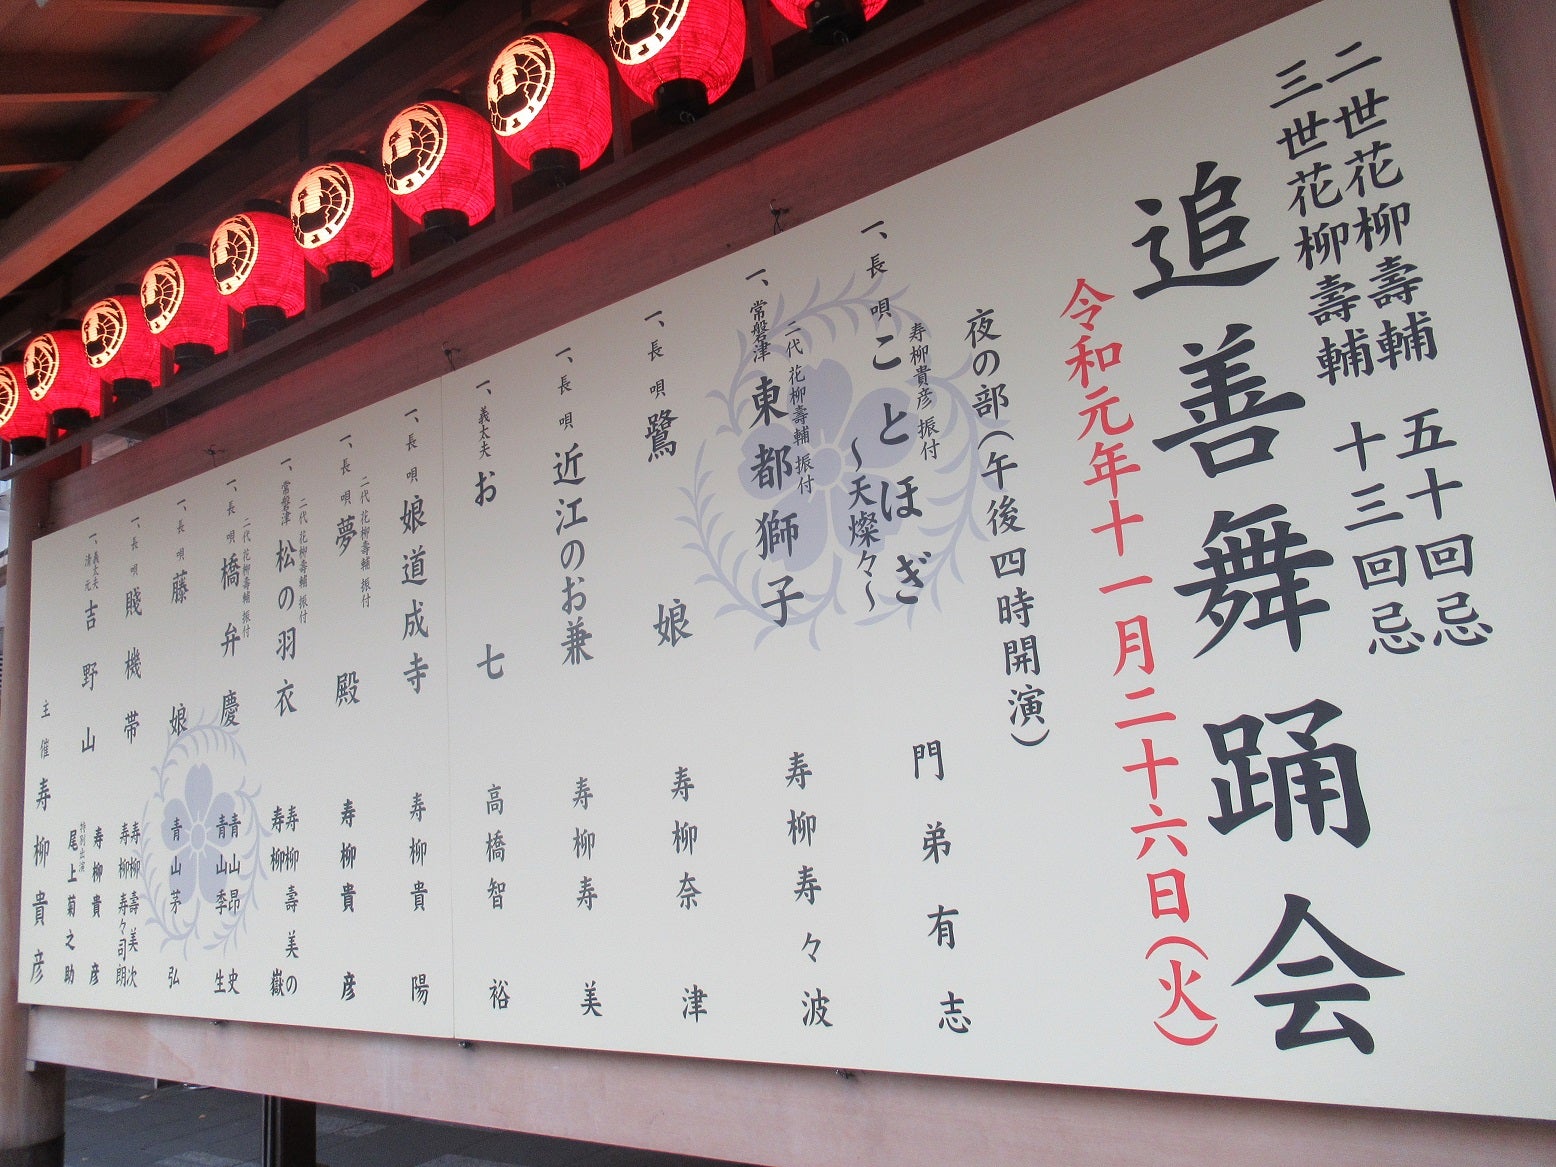 二世花柳壽輔 五十回忌
三世花柳壽輔 十三回忌
追善舞踊会
令和元年十一月二十六日(火)
夜の部(午後四時開演)
寿柳貴彦 振付
一、長唄 ことほぎ 門弟有志
~天燦々~
二代 花柳壽輔 振付
一、常磐津 東都獅子 寿柳寿々波
一、長唄 鷺娘 寿柳奈津
一、長唄 近江のお兼 寿柳寿美
一、義太夫 お七 高橋智裕
一、長唄 娘道成寺 寿柳貴陽
二代 花柳壽輔 振付
一、長唄 夢殿 寿柳貴彦
二代 花柳壽輔 振付
一、常磐津 松の羽衣 寿柳壽美の
寿柳嶽
二代 花柳壽輔 振付
一、長唄 橋弁慶 青山昂史
青山季生
一、長唄 藤娘 青山茅弘
一、長唄 賤機帯 寿柳壽美次
寿柳寿々司朗
一、義太夫 清元 吉野山 寿柳貴彦
特別出演 尾上菊之助
主催 寿柳貴彦